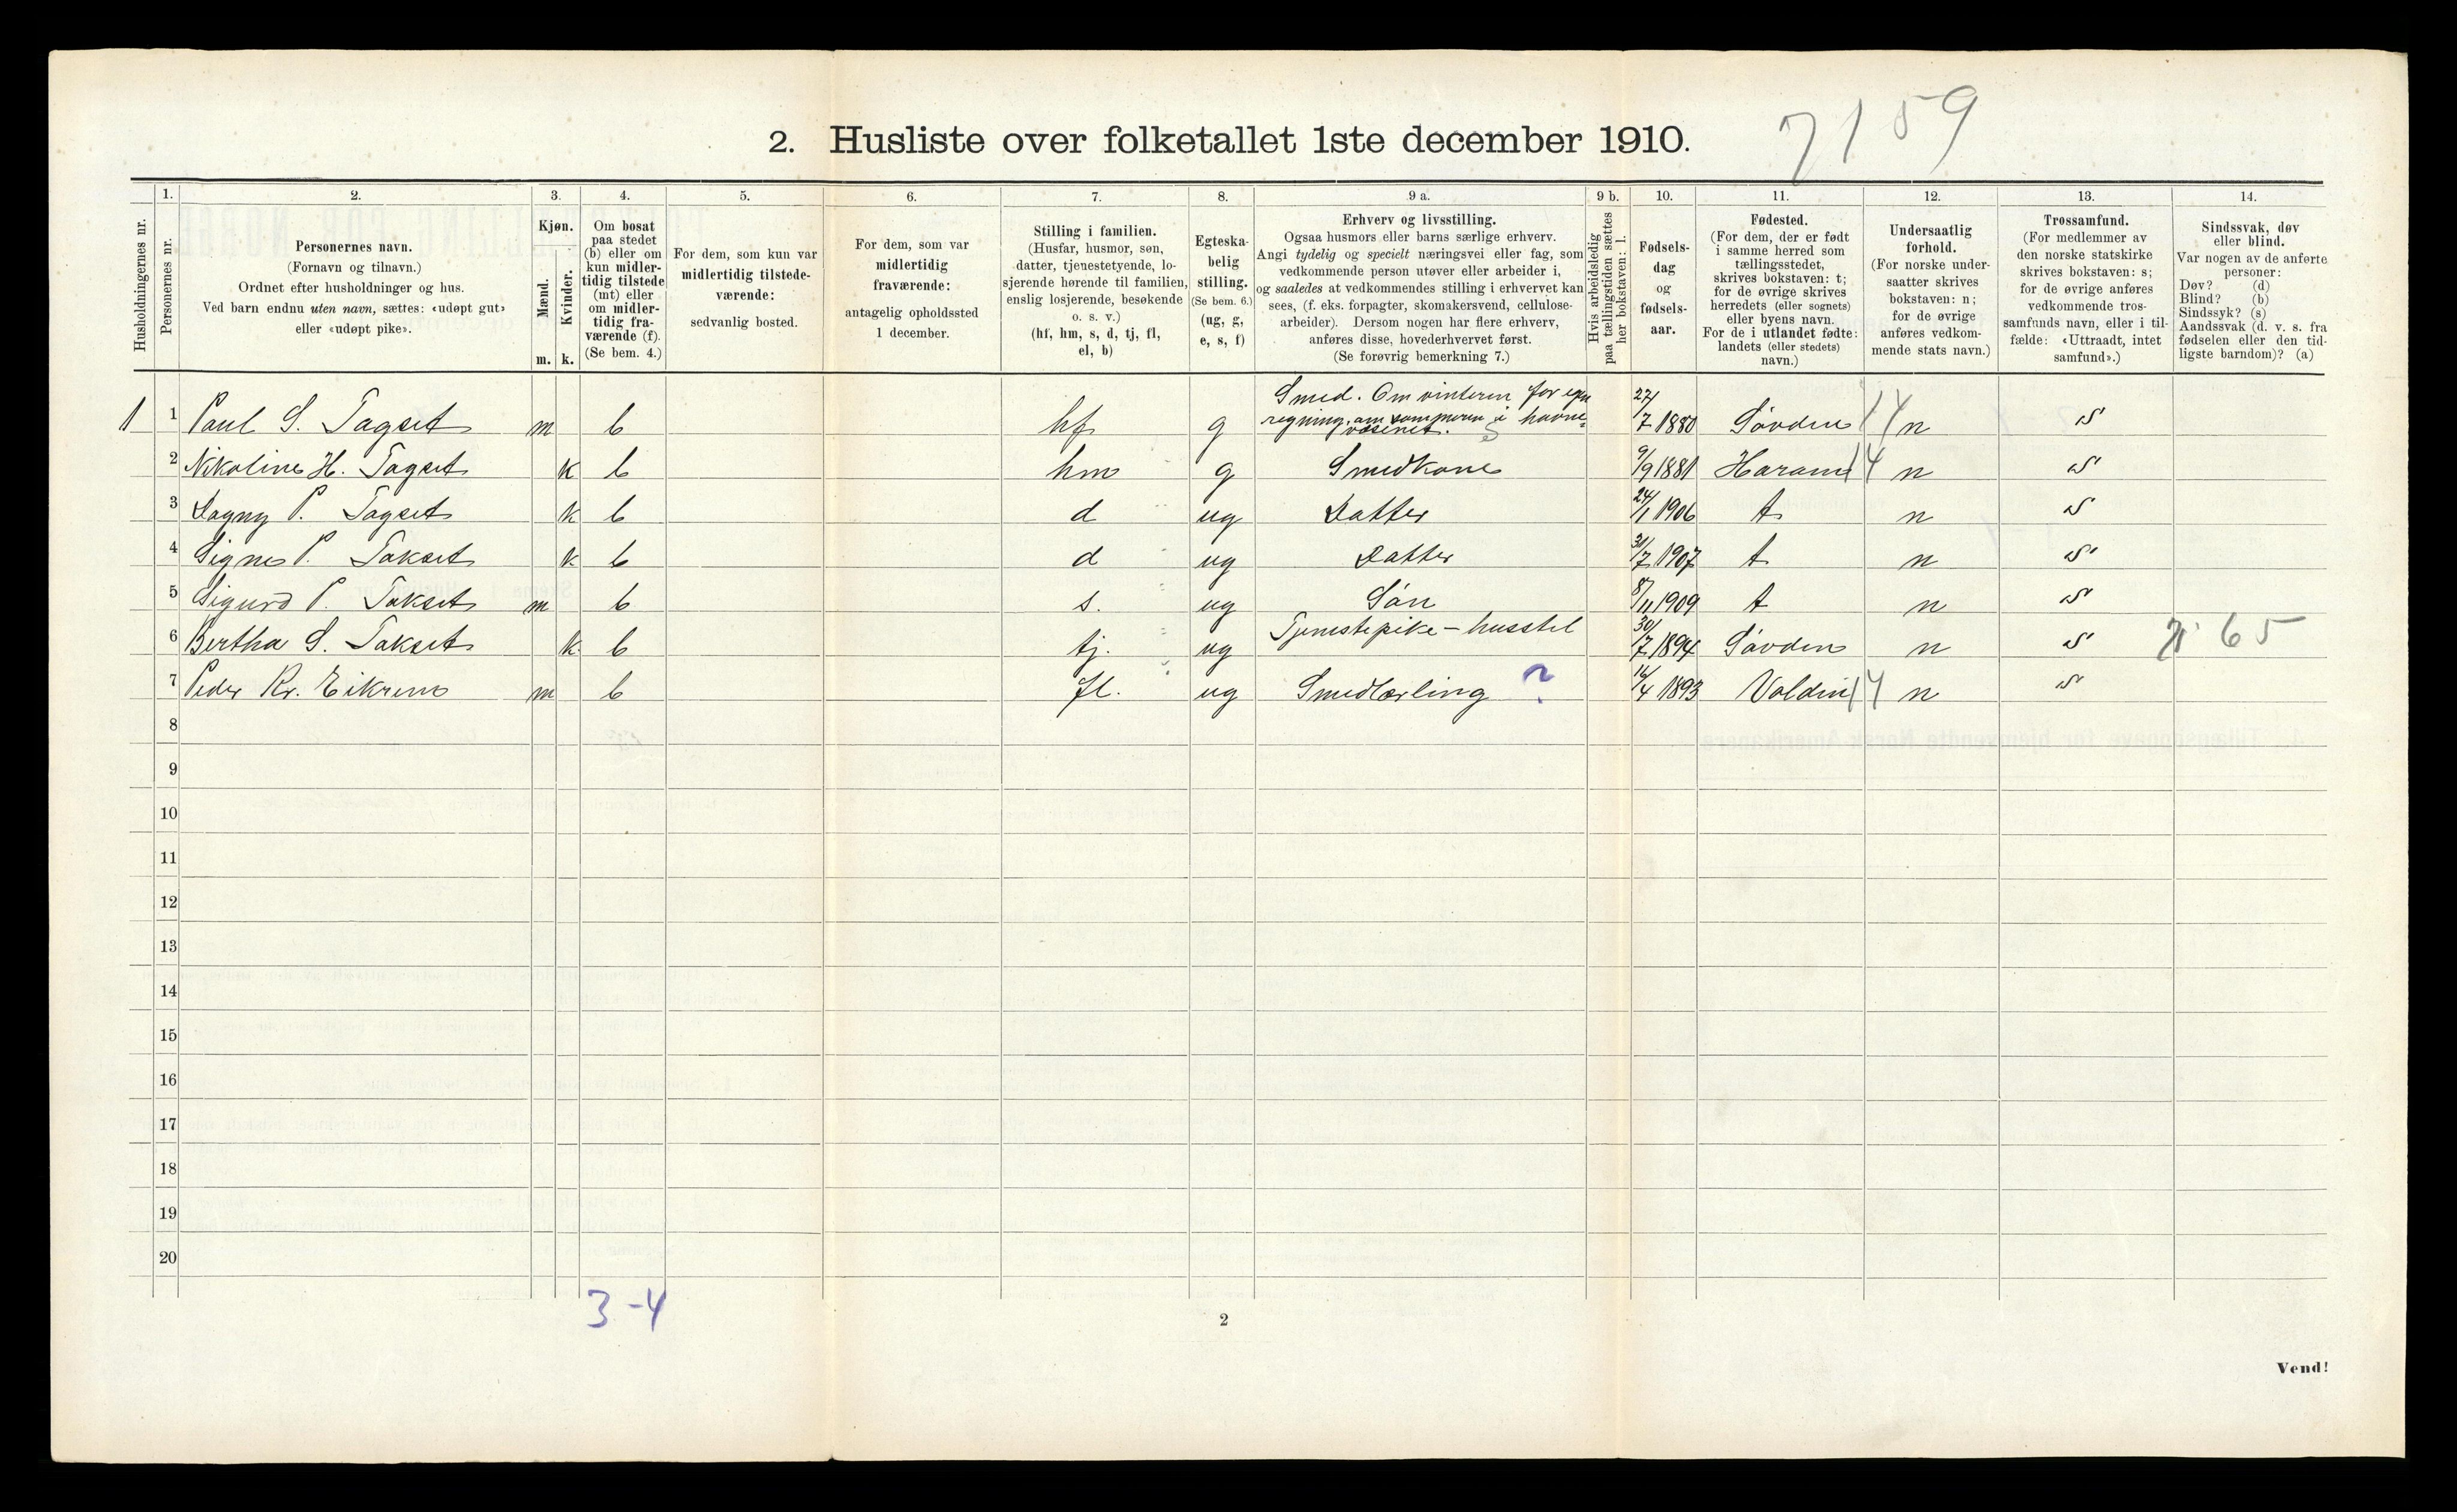 2. Husliste over folketallet 1ste december 1910.
7159
Husholdningernes nr.
1.
Personernes nr.
2.
Personernes navn.
(Fornavn og tilnavn.)
Ordnet efter husholdninger og hus.
Ved barn endnu uten navn, sættes: «udøpt gut»
eller «udøpt pike».
3.
Kjøn.
Mænd.
Kvinder.
m. k.
4.
Om bosat
paa stedet
(b) eller om
kun midler-
tidig tilstede
(mt) eller
om midler-
tidig fra-
værende (f).
(Se bem. 4.)
5.
For dem, som kun var
midlertidig tilstede-
værende:
sedvanlig bosted.
6.
For dem, som var
midlertidig
fraværende:
antagelig opholdssted
1 december.
7.
Stilling i familien.
(Husfar, husmor, søn,
datter, tjenestetyende, lo-
sjerende hørende til familien,
enslig losjerende, besøkende
o. s. v.)
(hf, hm, s, d, tj, fl,
el, b)
8.
Egteska-
belig
stilling.
(Se bem. 6.)
(ug, g,
e, s, f)
9 a.
Erhverv og livsstilling.
Ogsaa husmors eller barns særlige erhverv.
Angi tydelig og specielt næringsvei eller fag, som
vedkommende person utøver eller arbeider i,
og saaledes at vedkommendes stilling i erhvervet kan
sees, (f. eks. forpagter, skomakersvend, cellulose-
arbeider). Dersom nogen har flere erhverv,
anføres disse, hovederhvervet først.
(Se forøvrig bemerkning 7.)
9 b.
Hvis arbeidsledig
paa tællingstiden sættes
her bokstaven: l.
10.
Fødsels-
dag
og
fødsels-
aar.
11.
Fødested.
(For dem, der er født
i samme herred som
tællingsstedet,
skrives bokstaven: t;
for de øvrige skrives
herredets (eller sognets)
eller byens navn.
For de i utlandet fødte:
landets (eller stedets)
navn.)
12.
Undersaatlig
forhold.
(For norske under-
saatter skrives
bokstaven: n;
for de øvrige
anføres vedkom-
mende stats navn.)
13.
Trossamfund.
(For medlemmer av
den norske statskirke
skrives bokstaven: s;
for de øvrige anføres
vedkommende tros-
samfunds navn, eller i til-
fælde: «Uttraadt, intet
samfund».)
14.
Sindssvak, døv
eller blind.
Var nogen av de anførte
personer:
Døv? (d)
Blind? (b)
Sindssyk? (s)
Aandssvak (d. v. s. fra
fødselen eller den tid-
ligste barndom)? (a)
1 1 Paul S. Tagset m b hf g Smed. Om vinteren for egen regning, om sommeren i havne= væsenet. 27/7 1880 Søvden 14 n s
2 Nikoline H. Tagset k b hm g Smedkone 9/9 1881 Haram 14 n s
3 Dagny P. Tagset k b d ug Datter 24/1 1906 t n s
4 Signe P. Takset k b d ug Datter 31/7 1907 t n s
5 Sigurd P. Takset m b s. ug Søn 8/11 1909 t n s
6 Bertha S. Takset k b tj. ug Tjenestepike - husstel 30/7 1894 Søvden n s 65
7 Peder Kr. Eikrem m b fl. ug Smedlærling ? 16/4 1893 Voldin 14 n s
8
9
10
11
12
13
14
15
16
17
18
19
20
3-4
2
Vend!